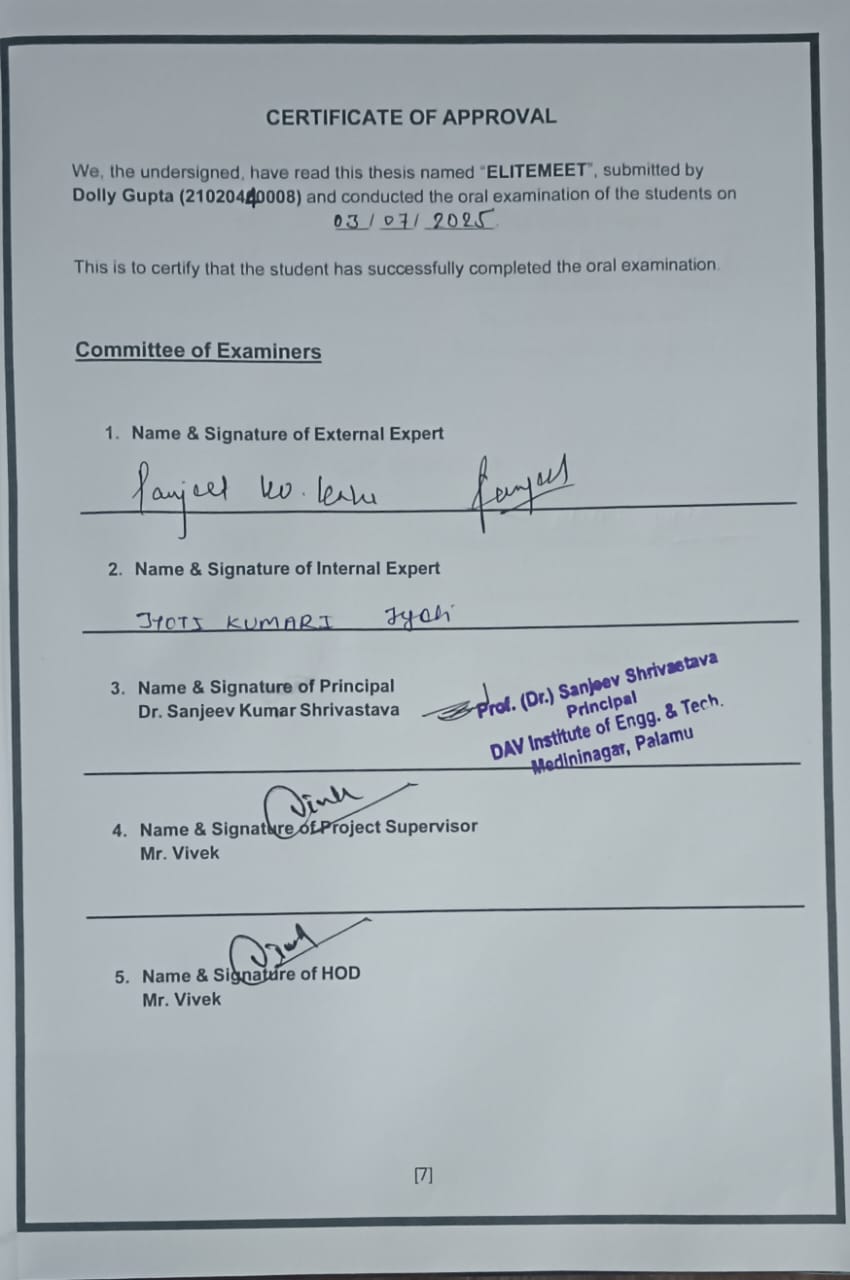 CERTIFICATE OF APPROVAL
We, the undersigned, have read this thesis named "ELITEMEET", submitted by
Dolly Gupta (21020440008) and conducted the oral examination of the students on
03/07/2025
This is to certify that the student has successfully completed the oral examination.
Committee of Examiners
1. Name & Signature of External Expert
Sanjeet
2. Name & Signature of Internal Expert
JYOTI KUMARI Jyoti
3. Name & Signature of Principal
Dr. Sanjeev Kumar Shrivastava
Prof. (Dr.) Sanjeev Shrivastava
Principal
DAV Institute of Engg. & Tech.
Medininagar, Palamu
4. Name & Signature of Project Supervisor
Mr. Vivek
5. Name & Signature of HOD
Mr. Vivek
[7]